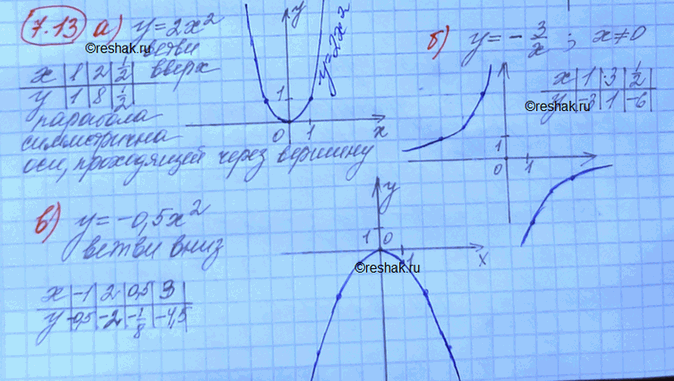 7.13 а) y=2x²
ветви
вверх
x | 1 | 2 | 1/2
y | 1 | 8 | 1/2
парабола
симметрична
оси, проходящей через вершину
©reshak.ru
y
y=2x²
1
0 1 x
б) y = - 3/x ; x≠0
©reshak.ru
x | 1 | 3 | 1/2
y | -3 | 1 | -6
1
0 1
в) y=-0,5x²
ветви вниз
x | -1 | 2 | 0,5 | 3
y | -0,5 | -2 | -1/8 | -4,5
y
1 0
1 x
©reshak.ru